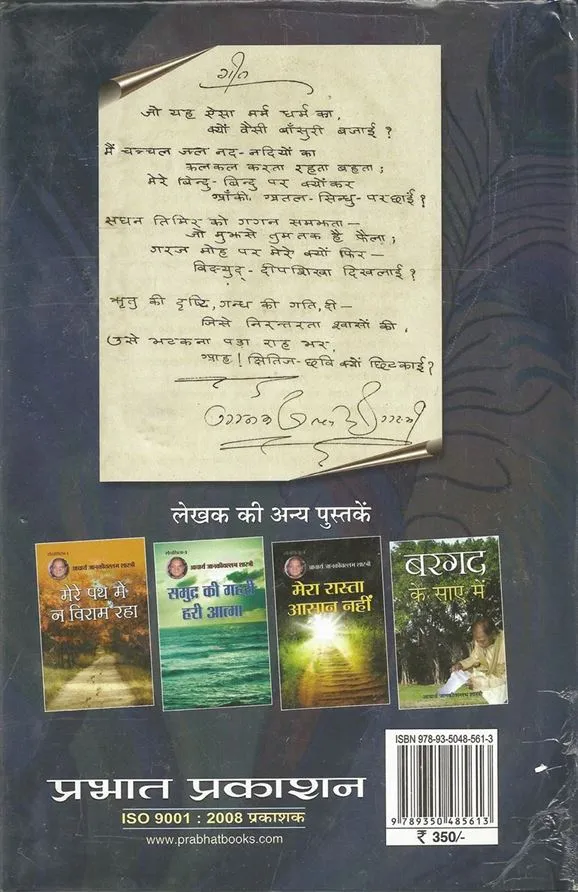 गीत
जो यह ऐसा मर्म धर्म का,
क्यों वैसी बाँसुरी बजाई ?
मैं चञ्चल जल नद-नदियों का
कलकल करता रहता बहता ;
मेरे बिन्दु-बिन्दु पर क्योंकर
आँकी अतल-सिन्धु-परछाईं ?
सघन तिमिर को गगन समझता—
जो मुझसे तुम तक है फैला ;
गरज मोह पर मेरे क्यों फिर—
विद्युद्-दीपशिखा दिखलाई ?
ऋतु की दृष्टि, गन्ध की गति, दी—
जिसे निरन्तरता श्वासों की,
उसे भटकना पड़ा राह भर,
आह ! क्षितिज-छवि क्यों छिटकाई ?
लेखक की अन्य पुस्तकें
आचार्य जानकीवल्लभ शास्त्री
मेरे पथ में
न विराम रहा
आचार्य जानकीवल्लभ शास्त्री
समुद्र की गहरी
हरी आत्मा
आचार्य जानकीवल्लभ शास्त्री
मेरा रास्ता
आसान नहीं
बरगद
के साए में
आचार्य जानकीवल्लभ शास्त्री
ISBN 978-93-5048-561-3
9 789350 485613
₹ 350/-
प्रभात प्रकाशन
ISO 9001 : 2008 प्रकाशक
www.prabhatbooks.com